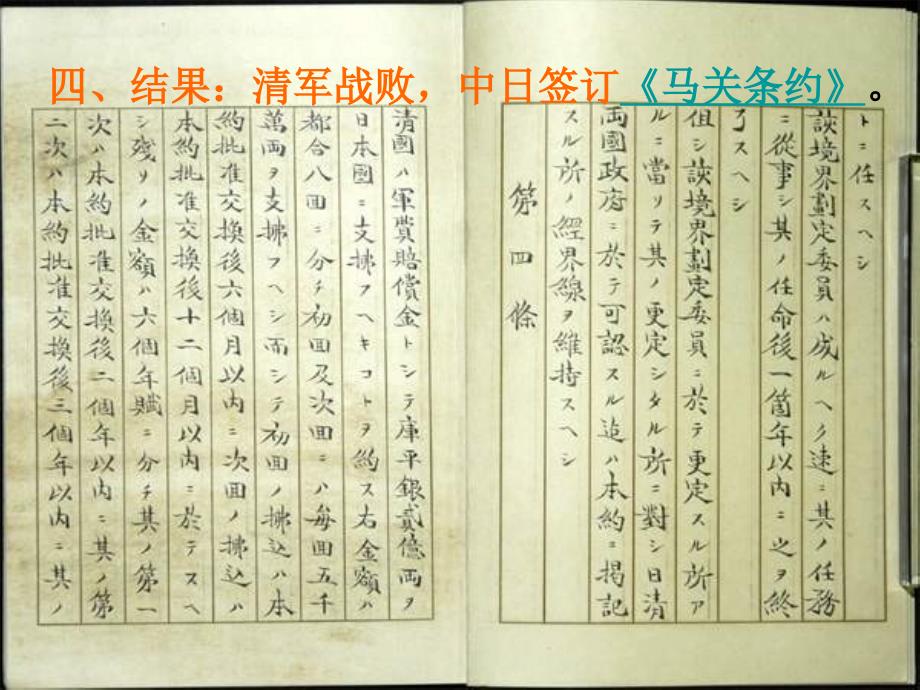 四、结果：清军战败，中日签订《马关条约》。
トニ任スヘシ
該境界劃定委員ハ成ルヘク速ニ其ノ任務
ニ從事シ其ノ任命後一箇年以内ニ之ヲ終
了スヘシ
但シ該境界劃定委員ニ於テ更定スル所ア
ルニ當リテ其ノ更定シタル所ニ對シ日清
両國政府ニ於テ可認スル迄ハ本約ニ掲記
スル所ノ經界線ヲ維持スヘシ
第四條
清國ハ軍費賠償金トシテ庫平銀貳億両ヲ
日本國ニ支拂フヘキコトヲ約ス右金額ハ
都合八回ニ分チ初回及次回ニハ毎回五千
萬両ヲ支拂フヘシ而シテ初回ノ拂込ハ本
約批准交換後六個月以内ニ次回ノ拂込ハ
本約批准交換後十二個月以内ニ於テスヘ
シ殘リノ金額ハ六個年賦ニ分チ其ノ第一
次ハ本約批准交換後二個年以内ニ其ノ第
二次ハ本約批准交換後三個年以内ニ其ノ